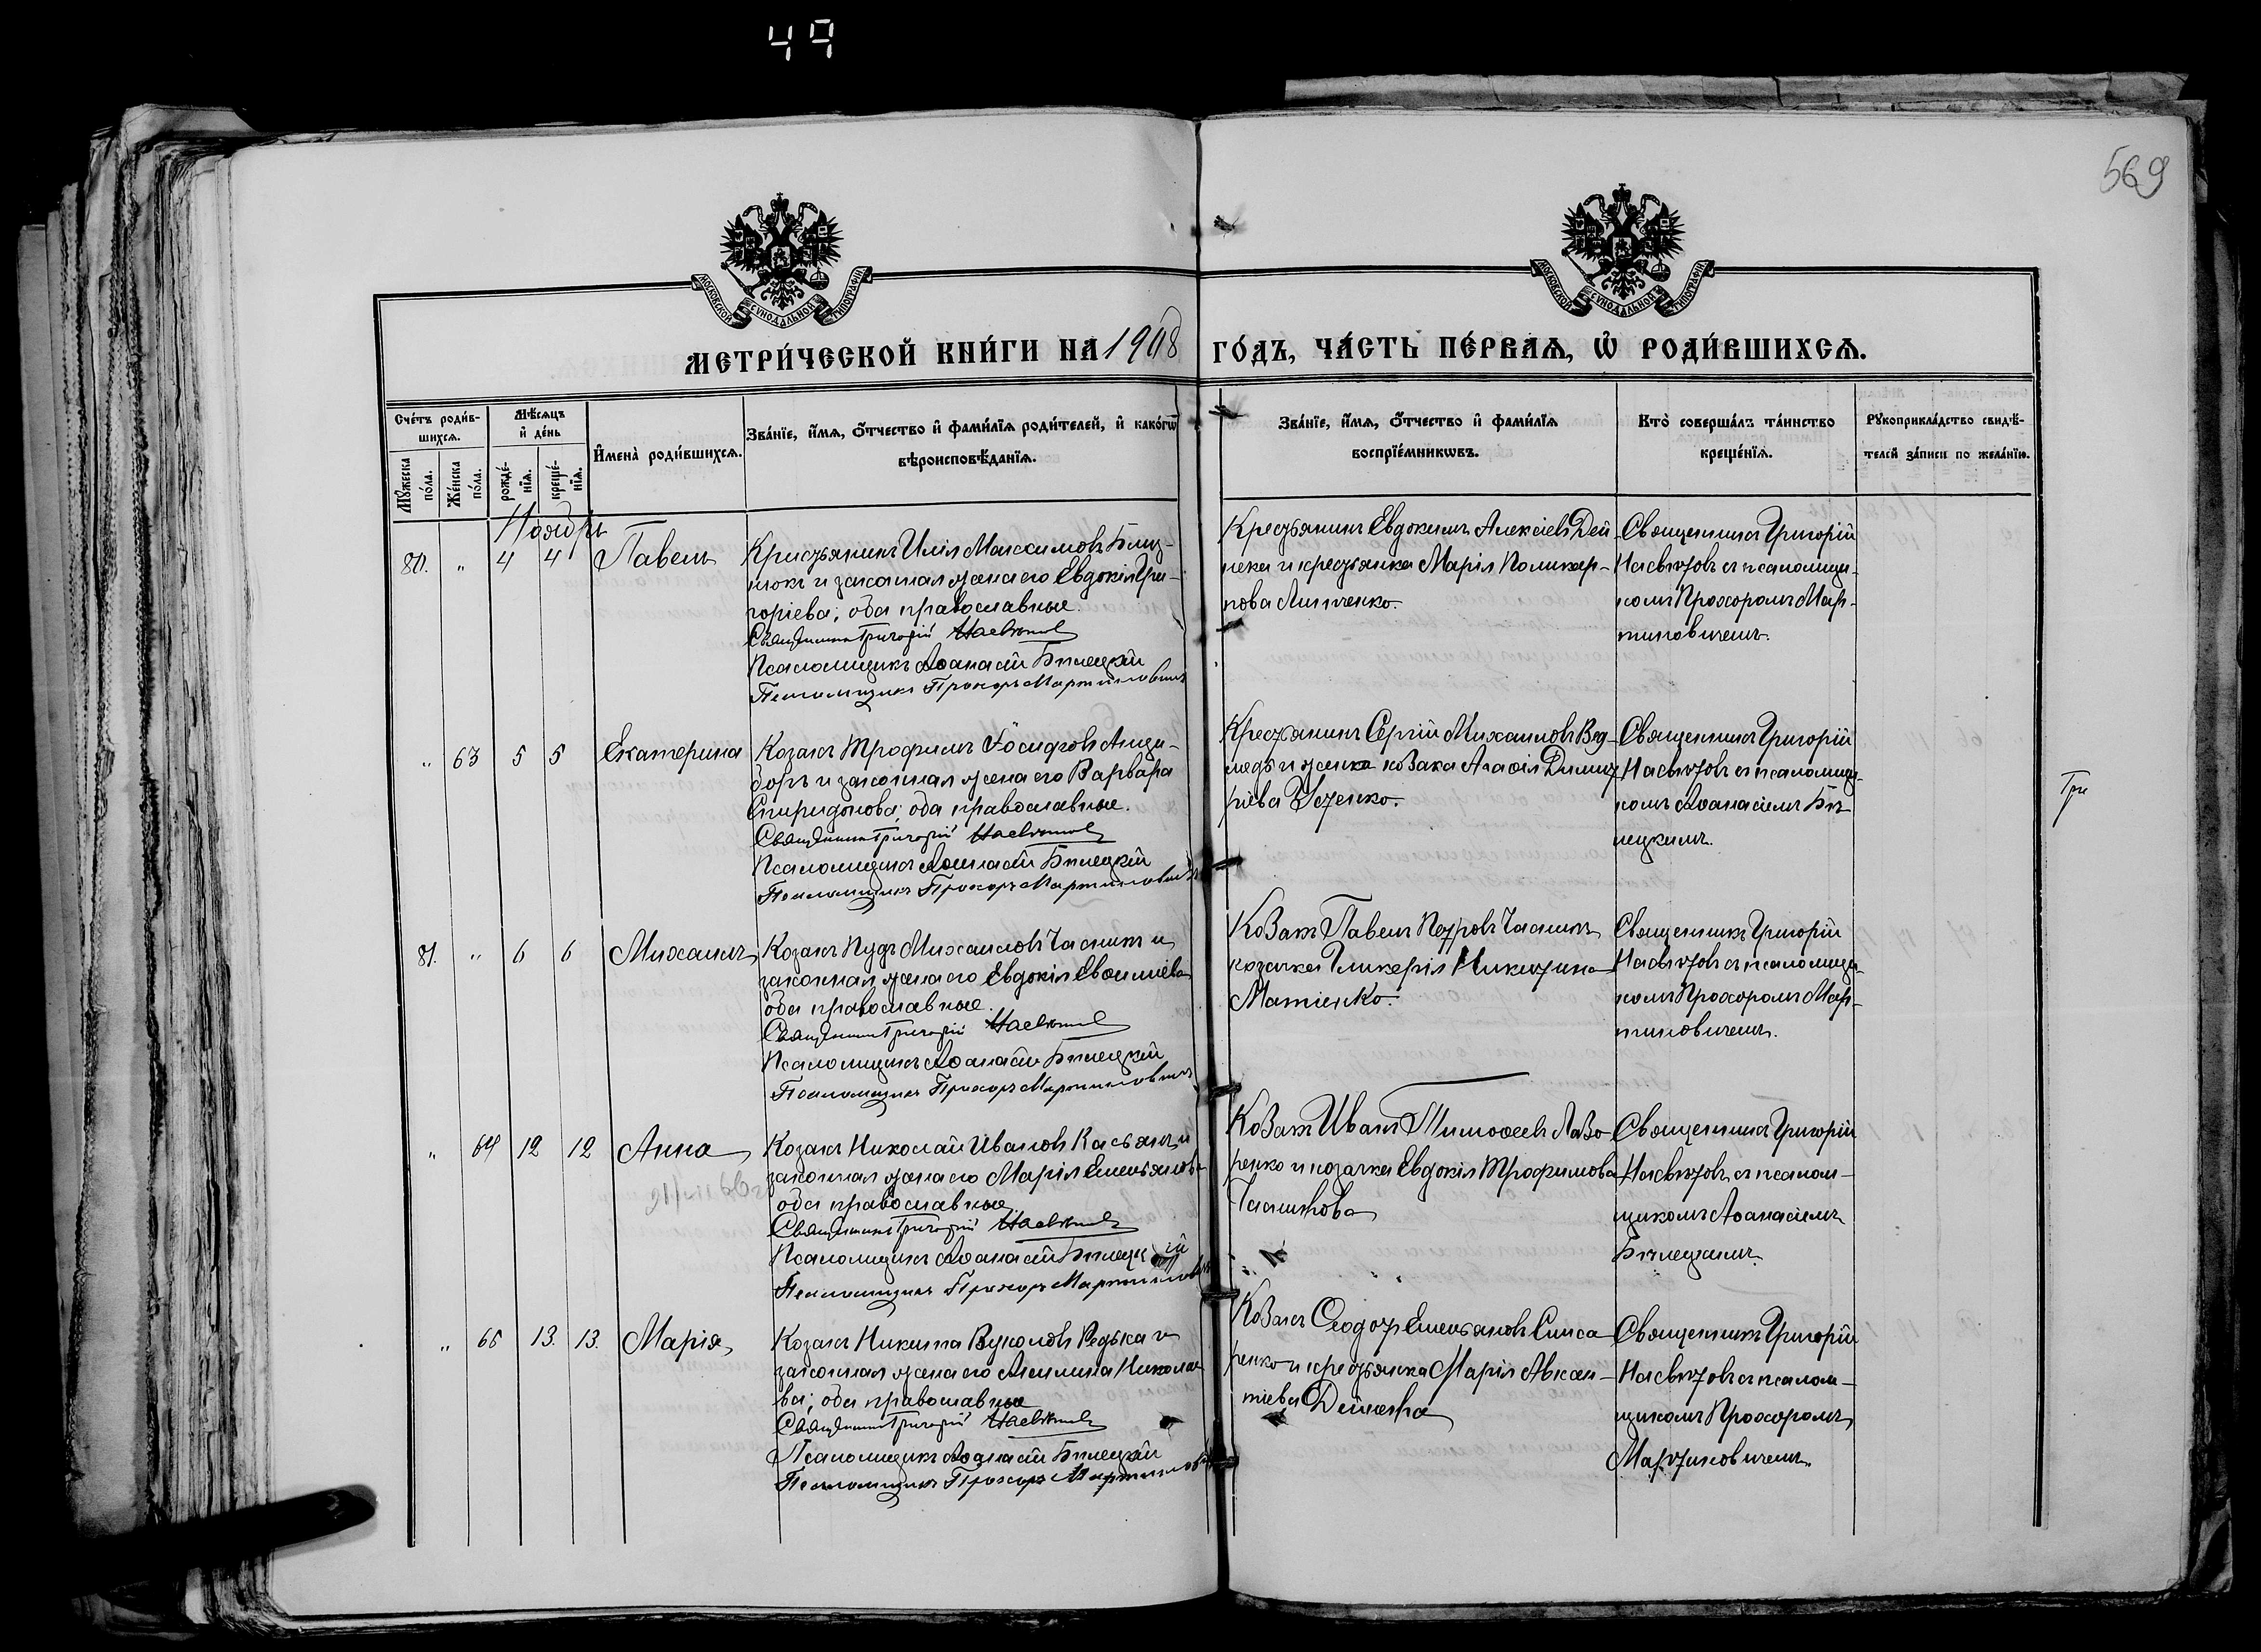 49
569
МОСКОВСКОЙ СѴНОДАЛЬНОЙ ТИПОГРАФІИ
МОСКОВСКОЙ СѴНОДАЛЬНОЙ ТИПОГРАФІИ
МЕТРИ́ЧЕСКОЙ КНИ́ГИ НА 1908 ГО́ДЪ, ЧА́СТЬ ПЕ́РВАѦ, Ѡ РОДИ́ВШИХСѦ.
Сче́тъ роди́в-
шихсѧ.
Мѣ́сѧцъ
и҆ де́нь
Мꙋ́жеска
по́ла.
Же́нска
по́ла.
рожде́-
нїѧ.
креще́-
нїѧ.
И҆мена̀ роди́вшихсѧ.
Зва́нїе, и҆́мѧ, ѻ҆́тчество и҆ фами́лїѧ роди́телей, и҆ како́гѡ
вѣроисповѣ́данїѧ.
Зва́нїе, и҆́мѧ, ѻ҆́тчество и҆ фами́лїѧ
воспрїе́мникѡвъ.
Кто̀ соверша́лъ та́инство
креще́нїѧ.
Рꙋкоприкла́дство свидѣ́-
телей за́писи по жела́нїю.
Ноябрь
80. " 4 4 Павелъ
Крестьянинъ Илія Максимовъ Близ-
нюкъ и законная жена его Евдокія Гри-
горіева; оба православные.
Священникъ Григорій Насвѣтовъ
Псаломщикъ Аѳанасій Бѣлецкій
Псаломщикъ Прохоръ Мартиновичъ
Крестьянинъ Евдокимъ Алексіевъ Дей-
нека и крестьянка Марія Поликар-
пова
Священникъ Григорій
Насвѣтовъ съ псаломщи-
комъ Прохоромъ Мар-
тиновичемъ.
" 63 5 5 Екатерина
Козакъ Трофимъ
и законная жена его Варвара
Спиридонова; оба православные.
Священникъ Григорій Насвѣтовъ
Псаломщикъ Аѳанасій Бѣлецкій
Псаломщикъ Прохоръ Мартиновичъ
Крестьянинъ Сергій Михаиловъ Вед-
медь и жена козака Агаѳія Димит-
ріева Усенко.
Священникъ Григорій
Насвѣтовъ съ псаломщи-
комъ Аѳанасіемъ Бѣ-
лецкимъ.
Три
81. " 6 6 Михаилъ
Козакъ Пудъ Михаиловъ Чаплыкъ и
законная жена его Евдокія Евѳиміева
оба православные.
Священникъ Григорій Насвѣтовъ
Псаломщикъ Аѳанасій Бѣлецкій
Псаломщикъ Прохоръ Мартиновичъ
Козакъ Павелъ Петровъ
козачка Гликерія Никитина
Матіенко.
Священникъ Григорій
Насвѣтовъ съ псаломщи-
комъ Прохоромъ Мар-
тиновичемъ.
" 64 12 12 Анна
Козакъ Николай Ивановъ Касьянъ и
законная жена его Марія Емельянова
оба православные.
Священникъ Григорій Насвѣтовъ
Псаломщикъ Аѳанасій Бѣлецкій
Псаломщикъ Прохоръ Мартиновичъ
Козакъ Иванъ Тимоѳеевъ Лазо-
ренко и козачка Евдокія Трофимова
Священникъ Григорій
Насвѣтовъ съ псалом-
щикомъ Аѳанасіемъ
Бѣлецкимъ.
" 65 13. 13. Марія
Козакъ Никита Вуколовъ Редька и
законная жена его Акилина Николае-
ва; оба православные
Священникъ Григорій Насвѣтовъ
Псаломщикъ Аѳанасій Бѣлецкій
Псаломщикъ Прохоръ Мартиновичъ
Козакъ Ѳеодотъ Емельяновъ Слюса-
ренко и крестьянка Марія Авксен-
тіева Дейнека
Священникъ Григорій
Насвѣтовъ съ псалом-
щикомъ Прохоромъ
Мартиновичемъ.